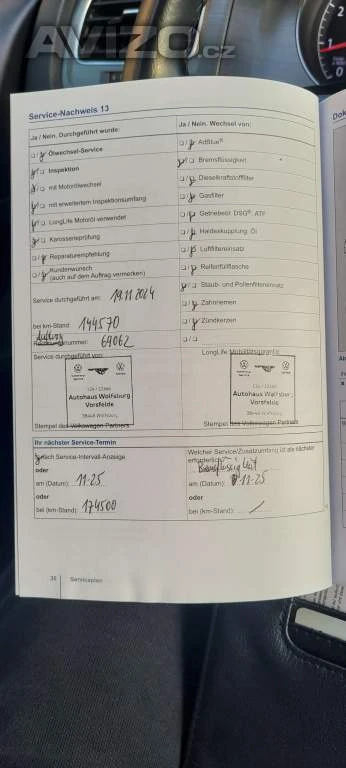 AVIZO.cz
Service-Nachweis 13
Ja / Nein. Durchgeführt wurde:
Ölwechsel-Service
Inspektion
mit Motorölwechsel
mit erweitertem Inspektionsumfang
LongLife Motoröl verwendet
Karosserieprüfung
Reparaturempfehlung
Kundenwunsch
(auch auf dem Auftrag vermerken)
Service durchgeführt am: 19.11.2024
bei km-Stand: 144570
nummer: 69062
Service durchgeführt von:
Autohaus Wolfsburg
Vorsfelde
38448 Wolfsburg
Stempel des Volkswagen Partners
Ja / Nein. Wechsel von:
AdBlue®
Bremsflüssigkeit
Dieselkraftstofffilter
Gasfilter
Getriebeöl: DSG®, ATF
Haldexkupplung: Öl
Luftfiltereinsatz
Reifenfüllflasche
Staub- und Pollenfiltereinsatz
Zahnriemen
Zündkerzen
LongLife Mobilitätsgarantie
Autohaus Wolfsburg
Vorsfelde
38448 Wolfsburg
Stempel des Volkswagen Partners
Ihr nächster Service-Termin
nach Service-Intervall-Anzeige
oder
am (Datum): 11.25
oder
bei (km-Stand): 174500
Welcher Service/Zusatzumfang ist als nächster
erforderlich?
Bremsflüssigkeit
am (Datum): 11.25
oder
bei (km-Stand):
36
Serviceplan
Dok